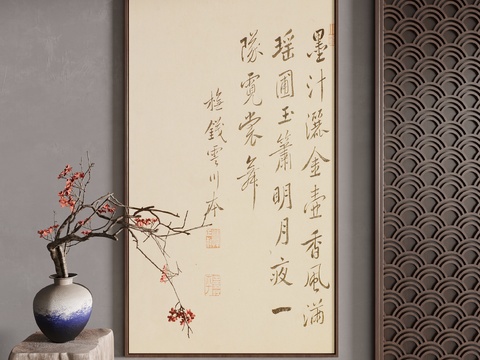 墨汁灑金壺香風滿
瑤圃玉簫明月夜一
隊霓裳舞
橅錢雲川本